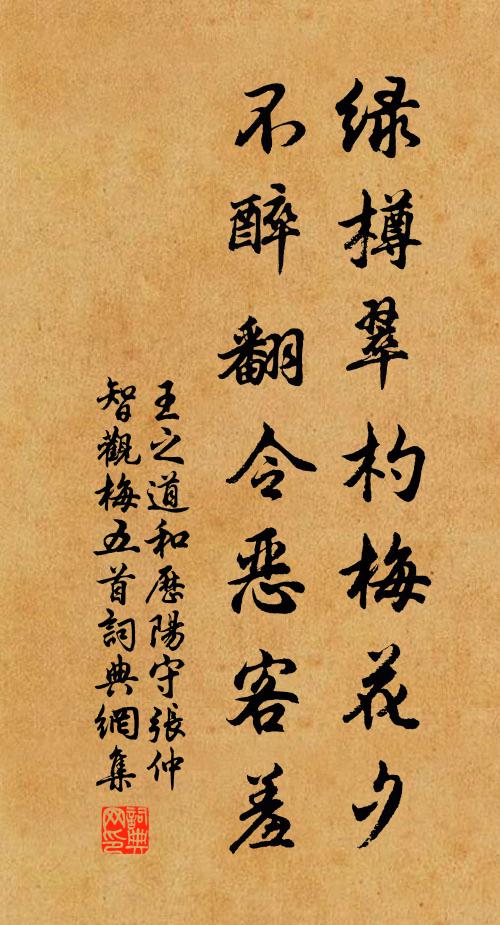 绿樽翠杓梅花夕
不醉翻令恶客羞
王之道和歷陽守張仲
智觀梅五首詞典網集
詞典
网印